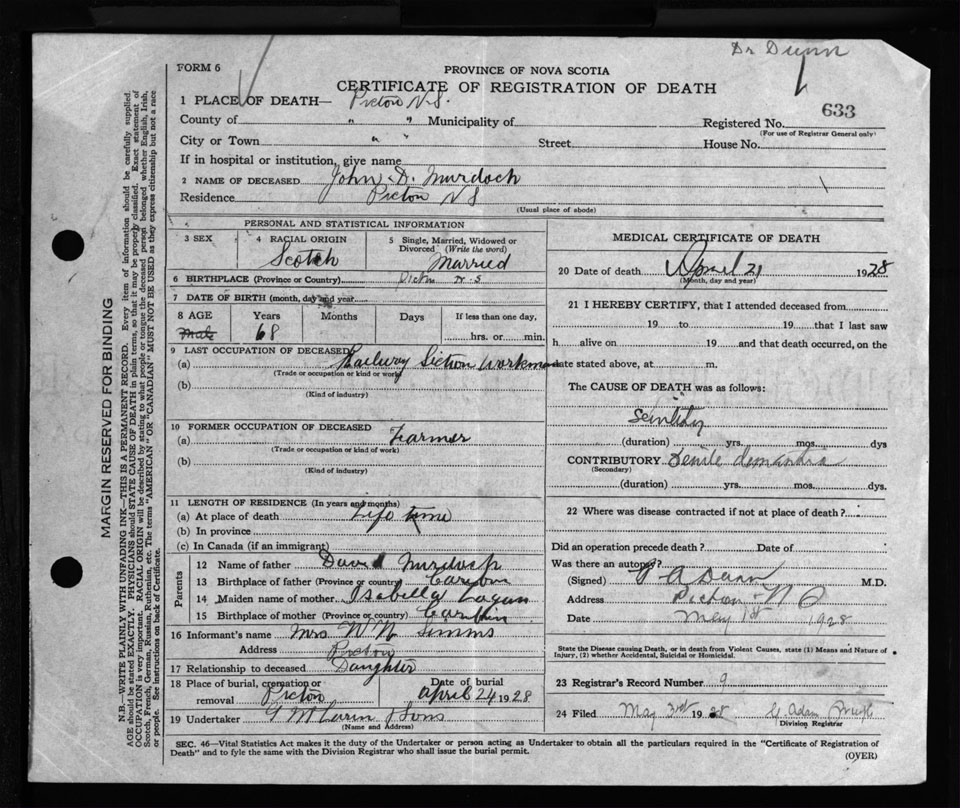 Dr Dunn
FORM 6
PROVINCE OF NOVA SCOTIA
CERTIFICATE OF REGISTRATION OF DEATH
633
1 PLACE OF DEATH— Pictou N.S.
County of " " Municipality of Registered No.
(For use of Registrar General only)
City or Town " " Street House No.
If in hospital or institution, give name
2 NAME OF DECEASED John D. Murdoch
Residence Pictou N S
(Usual place of abode)
PERSONAL AND STATISTICAL INFORMATION
3 SEX 4 RACIAL ORIGIN 5 Single, Married, Widowed or Divorced (Write the word)
Scotch Married
6 BIRTHPLACE (Province or Country) Pictou N.S
7 DATE OF BIRTH (month, day and year
8 AGE Years Months Days If less than one day,
Male 68 hrs. or min.
9 LAST OCCUPATION OF DECEASED
(a) Railway Section Workman
(Trade or occupation or kind or work)
(b)
(Kind of industry)
10 FORMER OCCUPATION OF DECEASED
(a) Farmer
(Trade or occupation or kind of work)
(b)
(Kind of industry)
11 LENGTH OF RESIDENCE (In years and months)
(a) At place of death Life time
(b) In province
(c) In Canada (if an immigrant)
Parents
12 Name of father David Murdoch
13 Birthplace of father (Province or country) Caribou
14 Maiden name of mother Isabella Logan
15 Birthplace of mother (Province or Country)
16 Informant's name Mrs Simms
Address Pictou
17 Relationship to deceased Daughter
18 Place of burial, cremation or removal Pictou
Date of burial April 24 1928
19 Undertaker & Sons
(Name and Address)
MEDICAL CERTIFICATE OF DEATH
20 Date of death April 21 1928
(Month, day and year)
21 I HEREBY CERTIFY, that I attended deceased from
19 to 19 that I last saw
h alive on 19 and that death occurred, on the
date stated above, at m.
The CAUSE OF DEATH was as follows:
Senility
(duration) yrs. mos. dys
CONTRIBUTORY Senile
(Secondary)
(duration) yrs. mos. dys.
22 Where was disease contracted if not at place of death?
Did an operation precede death? Date of
Was there an autopsy?
(Signed) Dunn M.D.
Address Pictou N S
Date May 1st 1928
State the Disease causing Death, or in death from Violent Causes, state (1) Means and Nature of
Injury, (2) whether Accidental, Suicidal or Homicidal.
23 Registrar's Record Number 9
24 Filed May 3rd 1928 Adam
Division Registrar
SEC. 46—Vital Statistics Act makes it the duty of the Undertaker or person acting as Undertaker to obtain all the particulars required in the "Certificate of Registration of
Death" and to fyle the same with the Division Registrar who shall issue the burial permit.
(OVER)
MARGIN RESERVED FOR BINDING
N.B.—WRITE PLAINLY WITH UNFADING INK—THIS IS A PERMANENT RECORD. Every item of information should be carefully supplied.
AGE should be stated EXACTLY. PHYSICIANS should STATE CAUSE OF DEATH in plain terms, so that it may be properly classified. Exact statement of
OCCUPATION is very important. RACIAL ORIGIN will be described by stating to what people or tongue the deceased person belonged whether English, Irish,
Scotch, French, German, Russian, Ruthenian, etc. The terms "AMERICAN" OR "CANADIAN" MUST NOT BE USED as they express citizenship but not a race
or people. See instructions on back of Certificate.